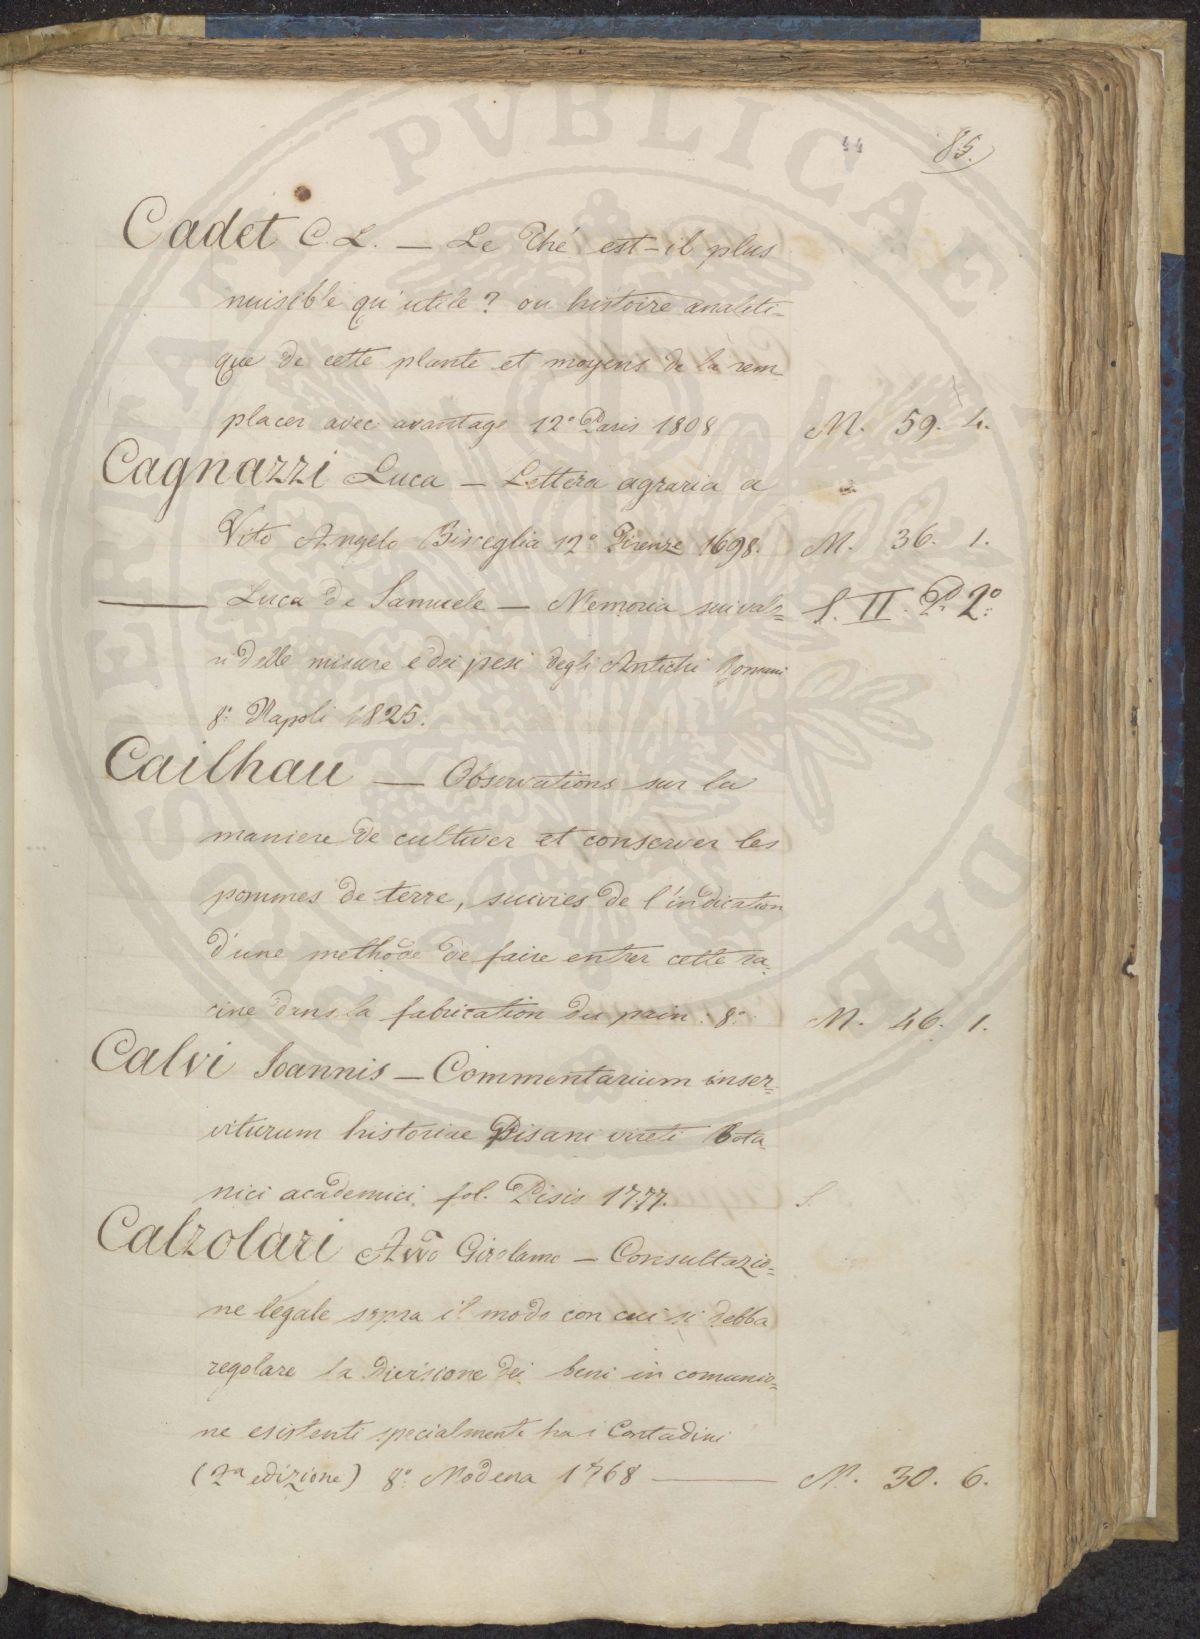 44 85.
Cadet C. L. — Le Thé est-il plus
nuisible qu'utile? ou histoire analiti-
que de cette plante et moyens de la rem-
placer avec avantage 12.° Paris 1808 M. 59. 4.
Cagnazzi Luca — Lettera agraria a
Vito Angelo Bisceglia 12.° Firenze 1698. M. 36. 1.
—— Luca de Samuele — Memoria sui valo= S. II. P. 2.°
ri delle misure e dei pesi degli Antichi Romani
8.° Napoli 1825.
Cailhau — Observations sur la
maniere de cultiver et conserver les
pommes de terre, suivies de l'indication
d'une methode de faire entrer cette ra-
cine dans la fabrication du pain: 8.° M. 46. 1.
Calvi Ioannis — Commentarium inser=
viturum historiae Pisani vireti Bota-
nici academici. fol. Pisis 1777. S.
Calzolari Avvo Girolamo — Consultazio=
ne legale sopra il modo con cui si debba
regolare la divisione dei beni in comunio=
ne esistenti specialmente tra i Contadini
(2.a edizione) 8.° Modena 1768 —— M. 30. 6.
PVBLICAE